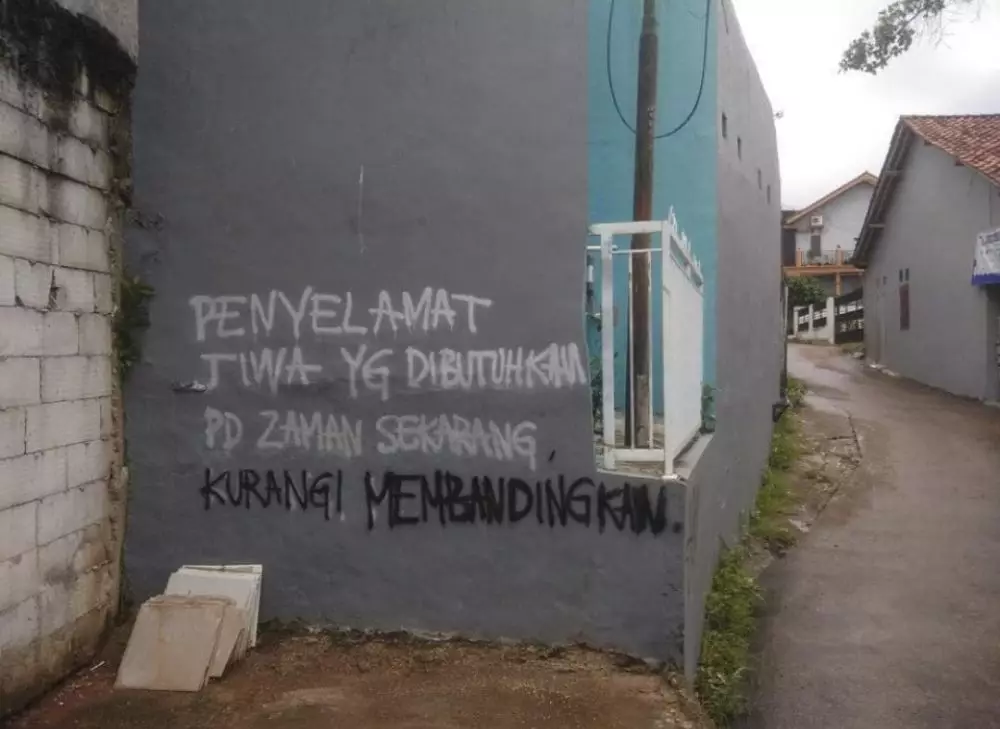 PENYELAMAT
JIWA YG DIBUTUHKAN
PD ZAMAN SEKARANG,
KURANGI MEMBANDINGKAN.